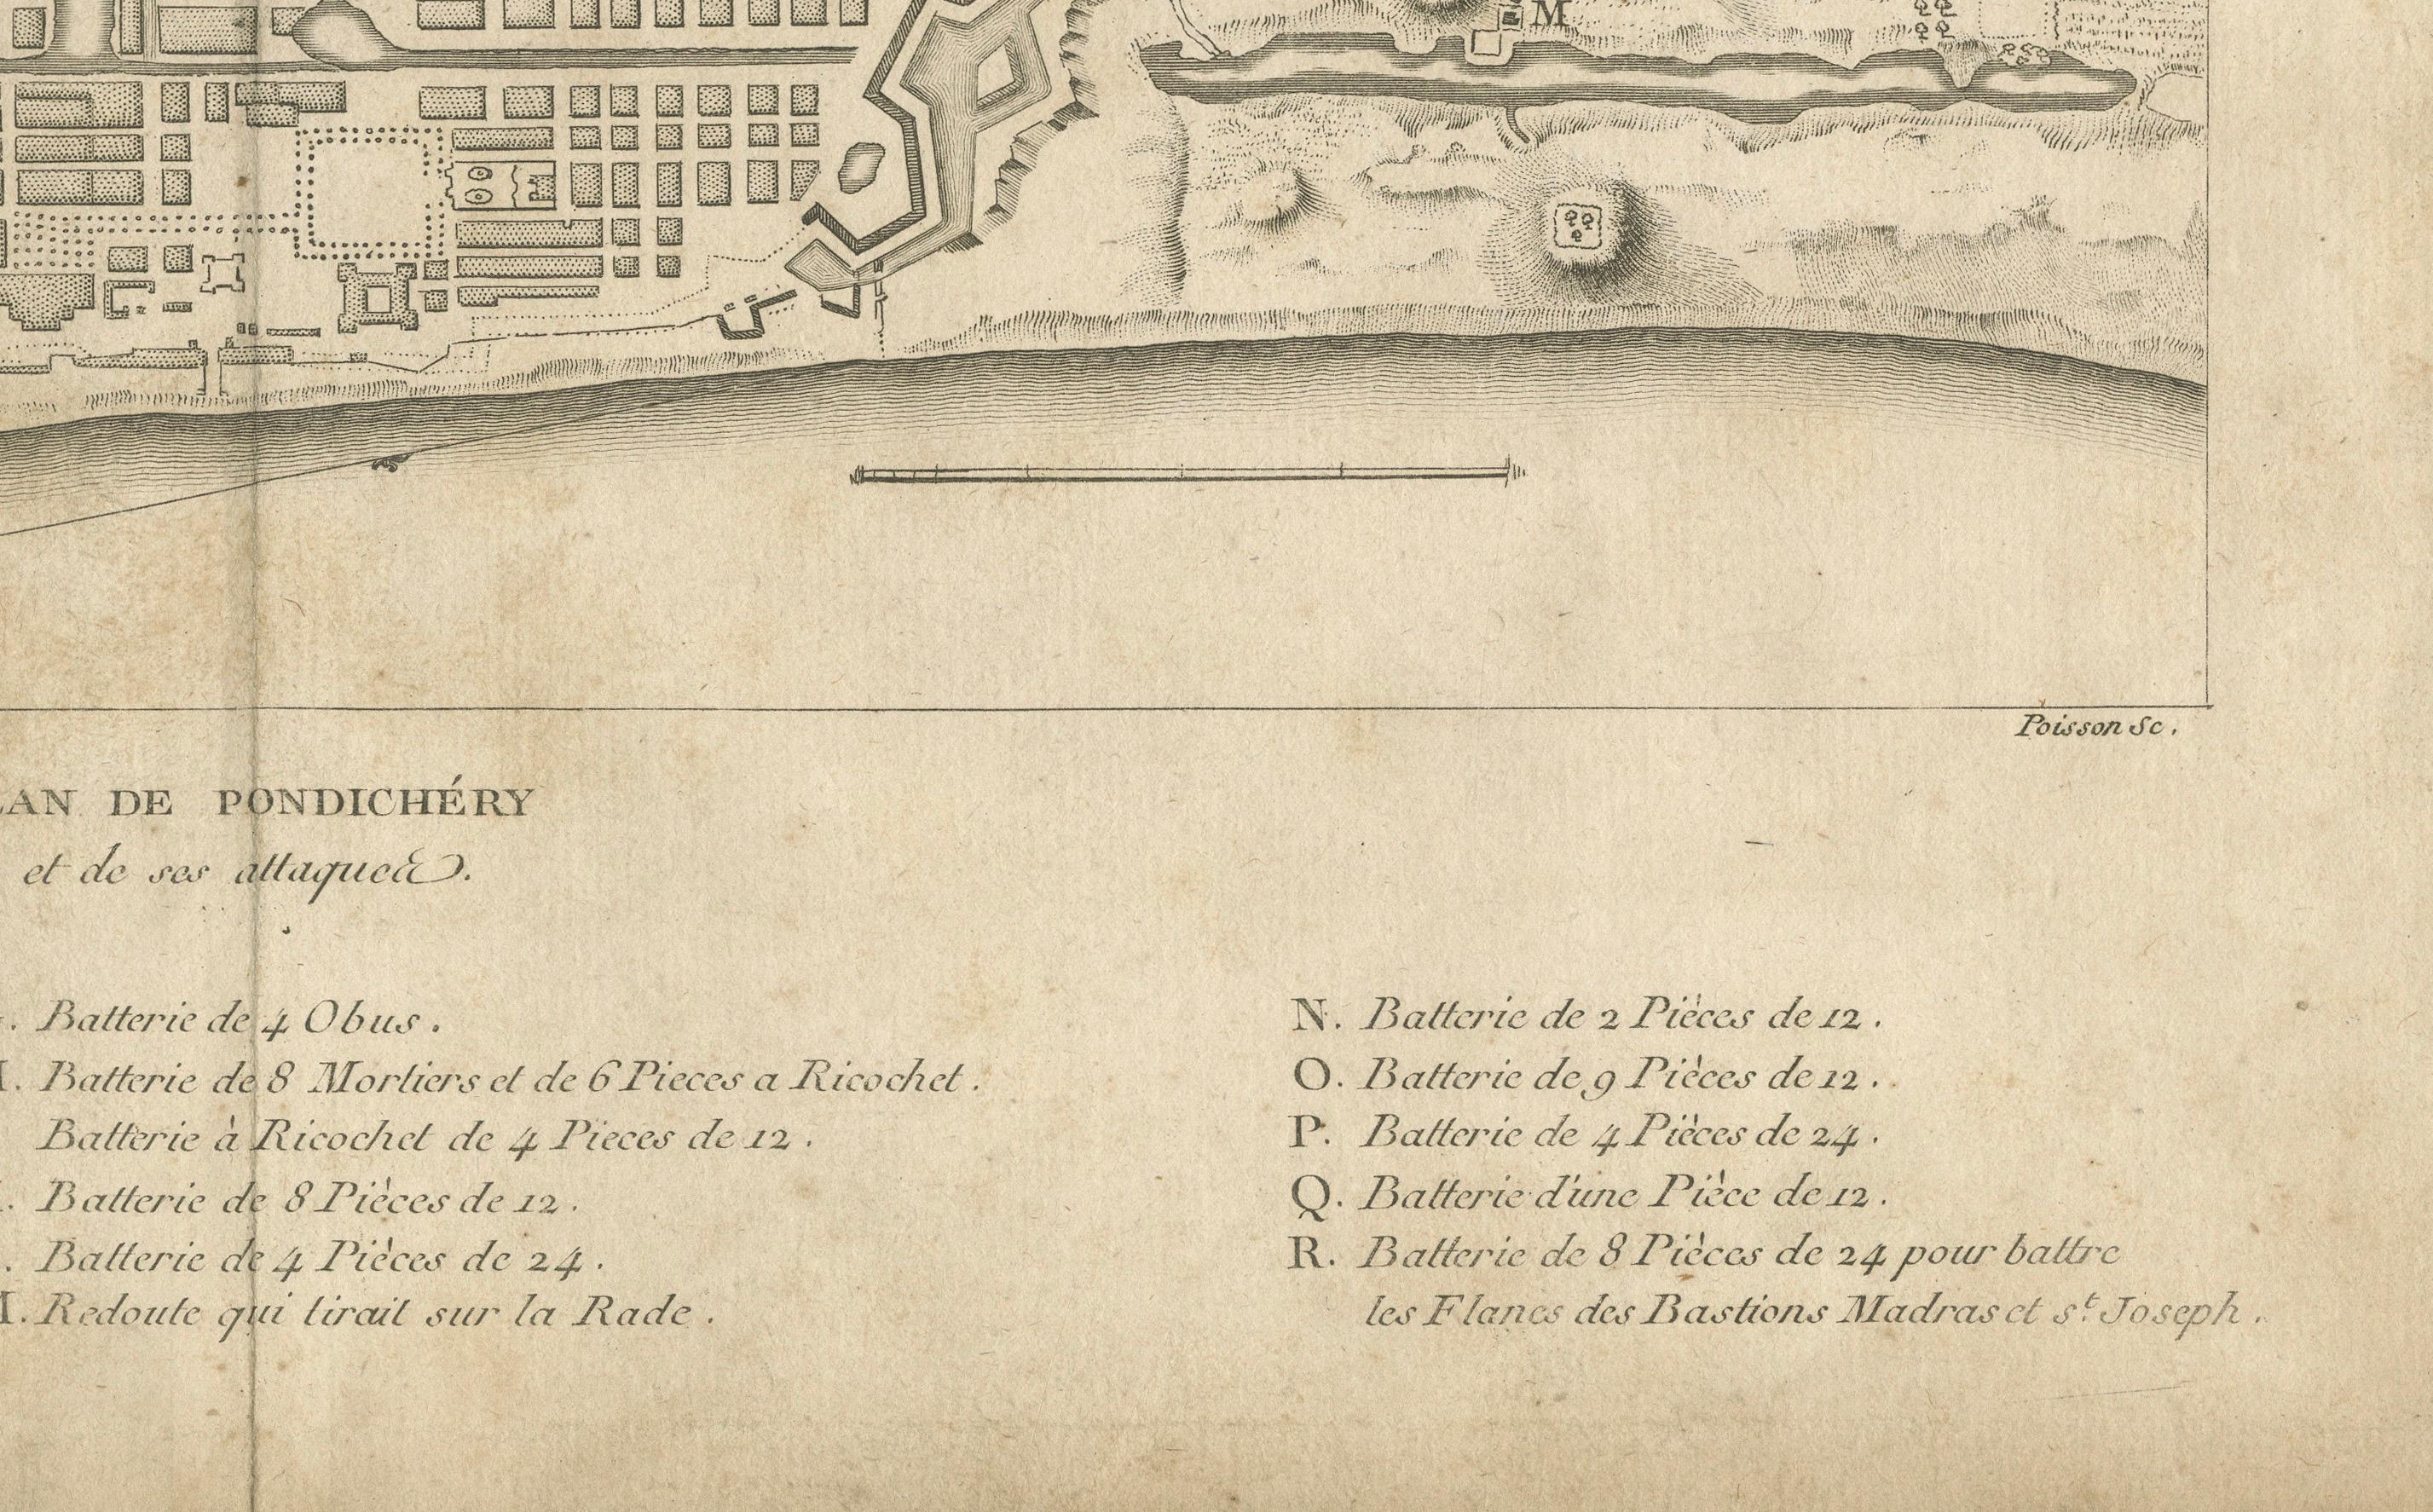 M
Poisson Sc.
PLAN DE PONDICHÉRY
et de ses attaques.
Batterie de 4 Obus.
Batterie de 8 Mortiers et de 6 Pieces a Ricochet.
Batterie à Ricochet de 4 Pieces de 12.
Batterie de 8 Pièces de 12.
Batterie de 4 Pièces de 24.
M. Redoute qui tirait sur la Rade.
N. Batterie de 2 Pièces de 12.
O. Batterie de 9 Pièces de 12.
P. Batterie de 4 Pièces de 24.
Q. Batterie d'une Pièce de 12.
R. Batterie de 8 Pièces de 24 pour battre
les Flancs des Bastions Madras et st. Joseph.